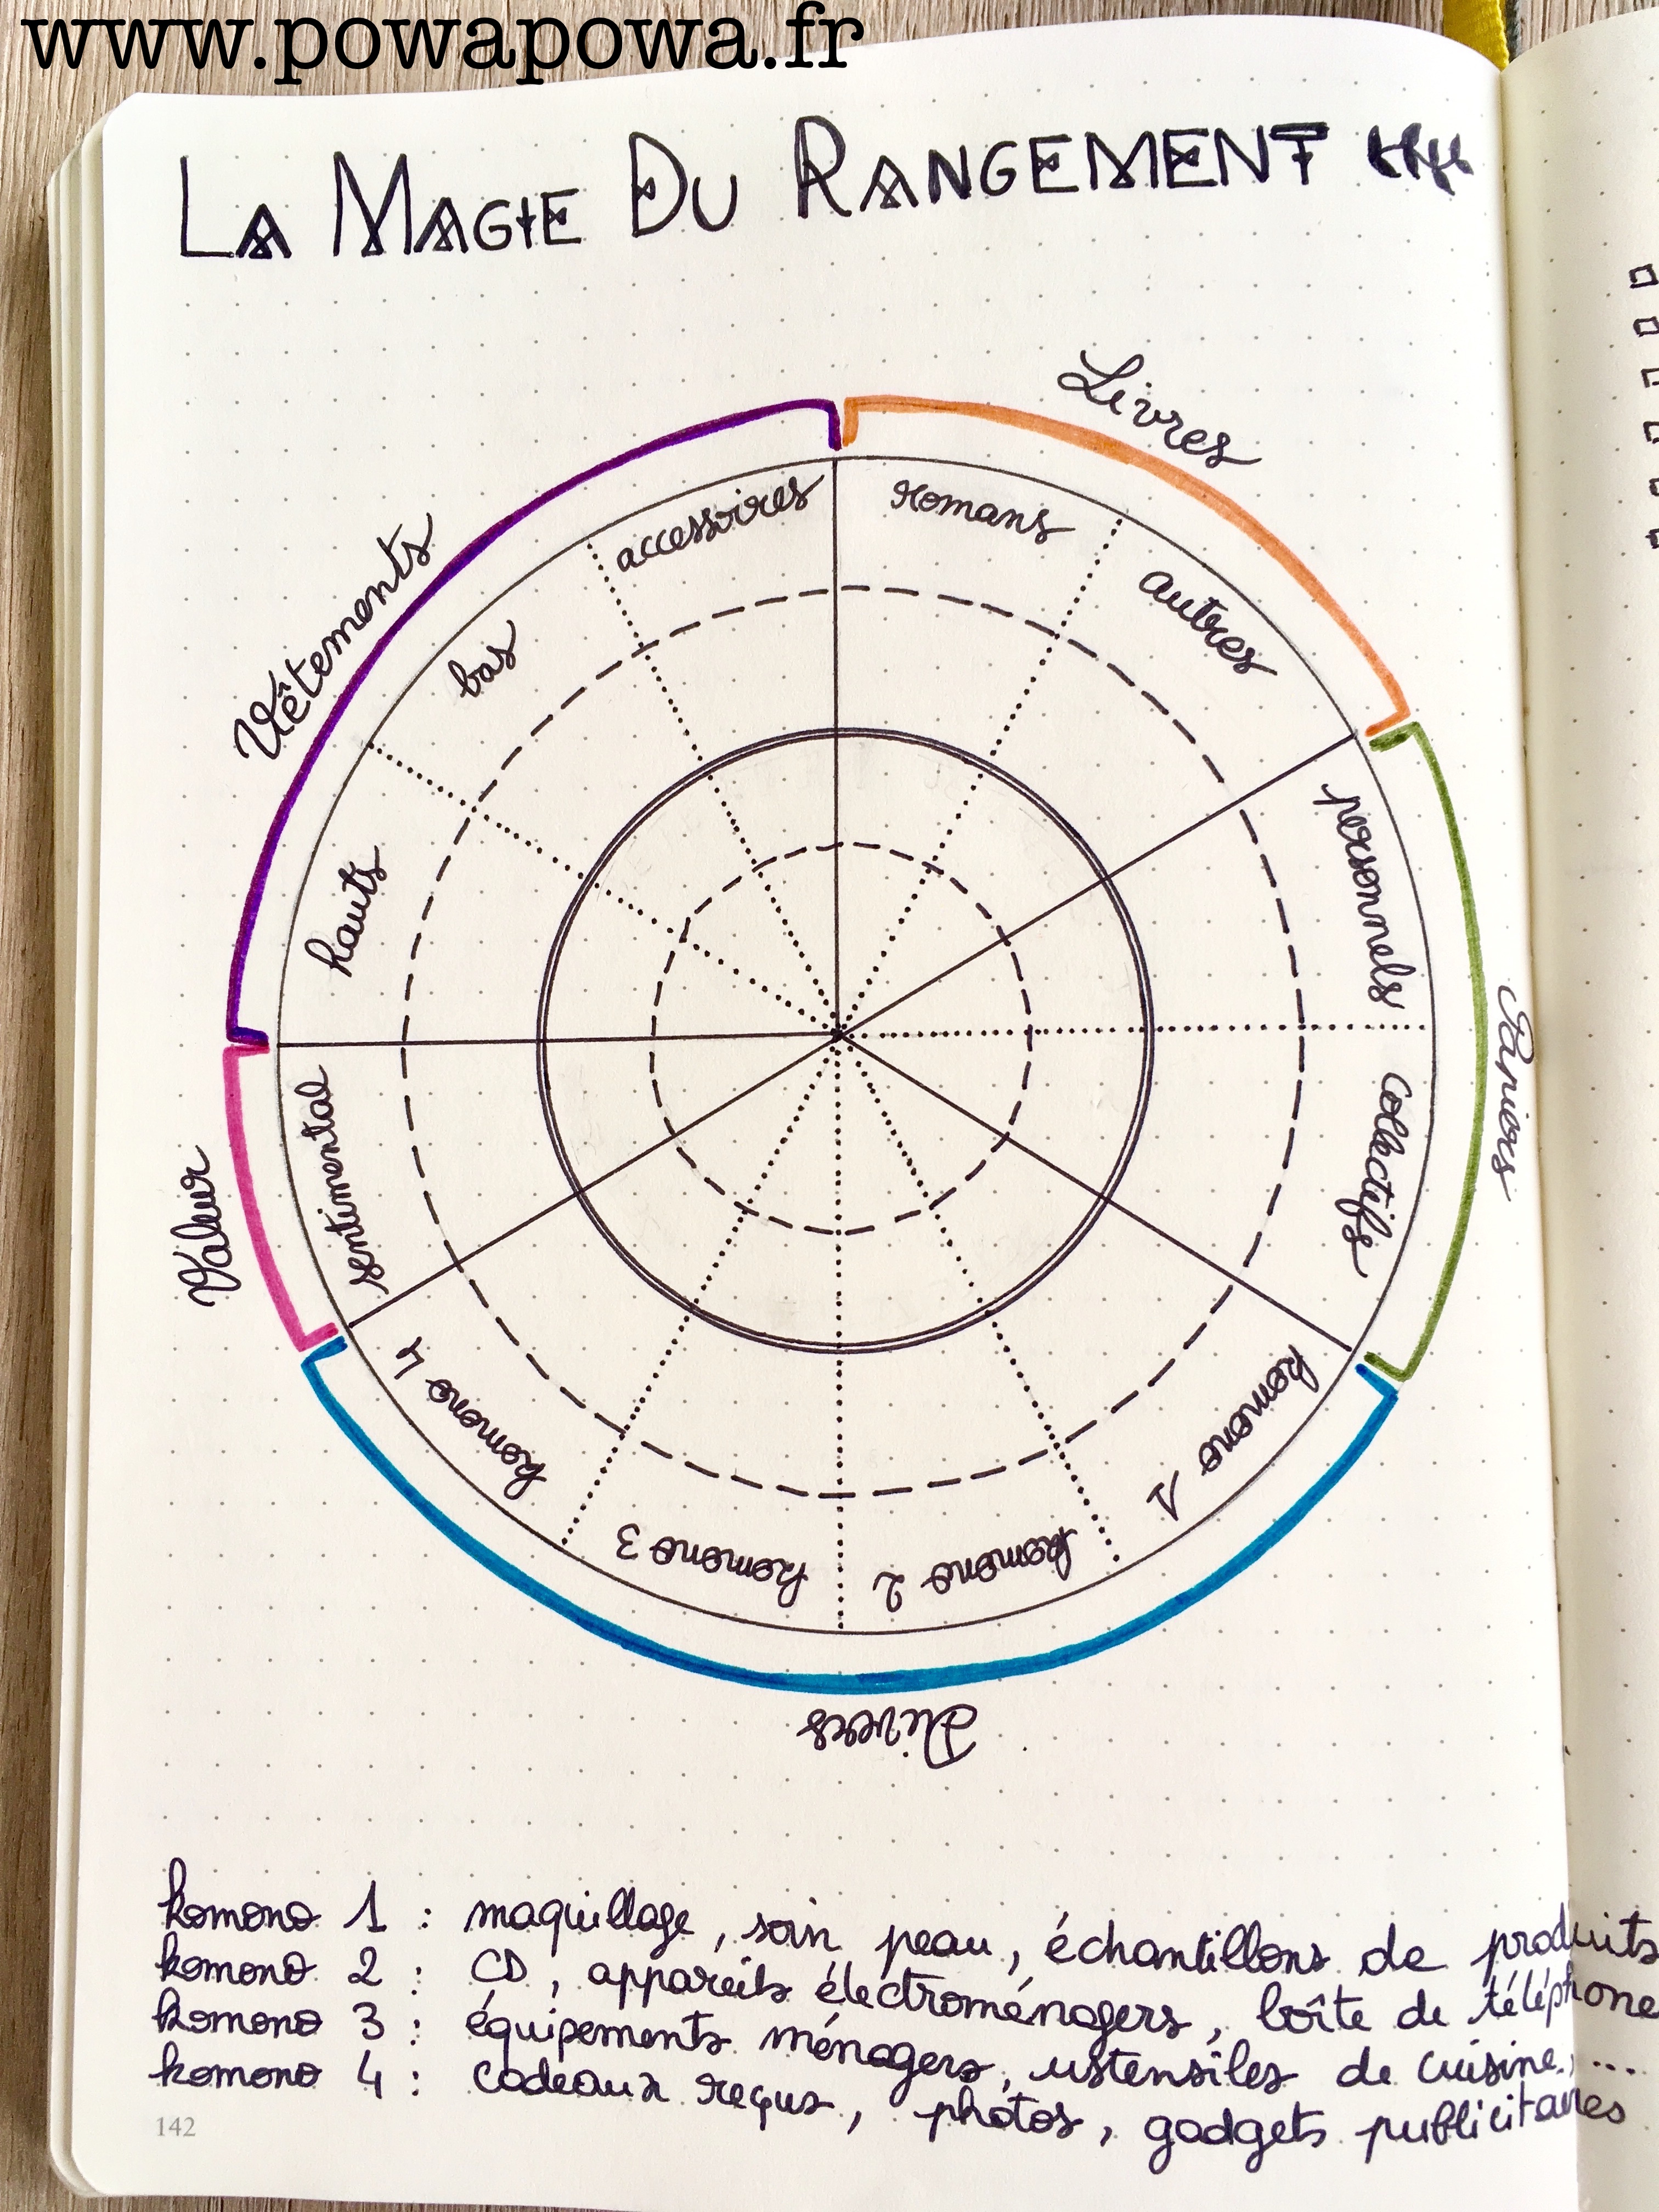 www.powapowa.fr
LA MAGIE DU RANGEMENT
Livres
romans
autres
personnels
collectifs
Papiers
komono 1
komono 2
komono 3
komono 4
Divers
sentimental
Valeur
hauts
bas
accessoires
Vêtements
komono 1 : maquillage, soin peau, échantillons de produits
komono 2 : CD, appareils électroménagers, boîte de téléphone
komono 3 : équipements ménagers, ustensiles de cuisine, ...
komono 4 : cadeaux reçus, photos, gadgets publicitaires
142